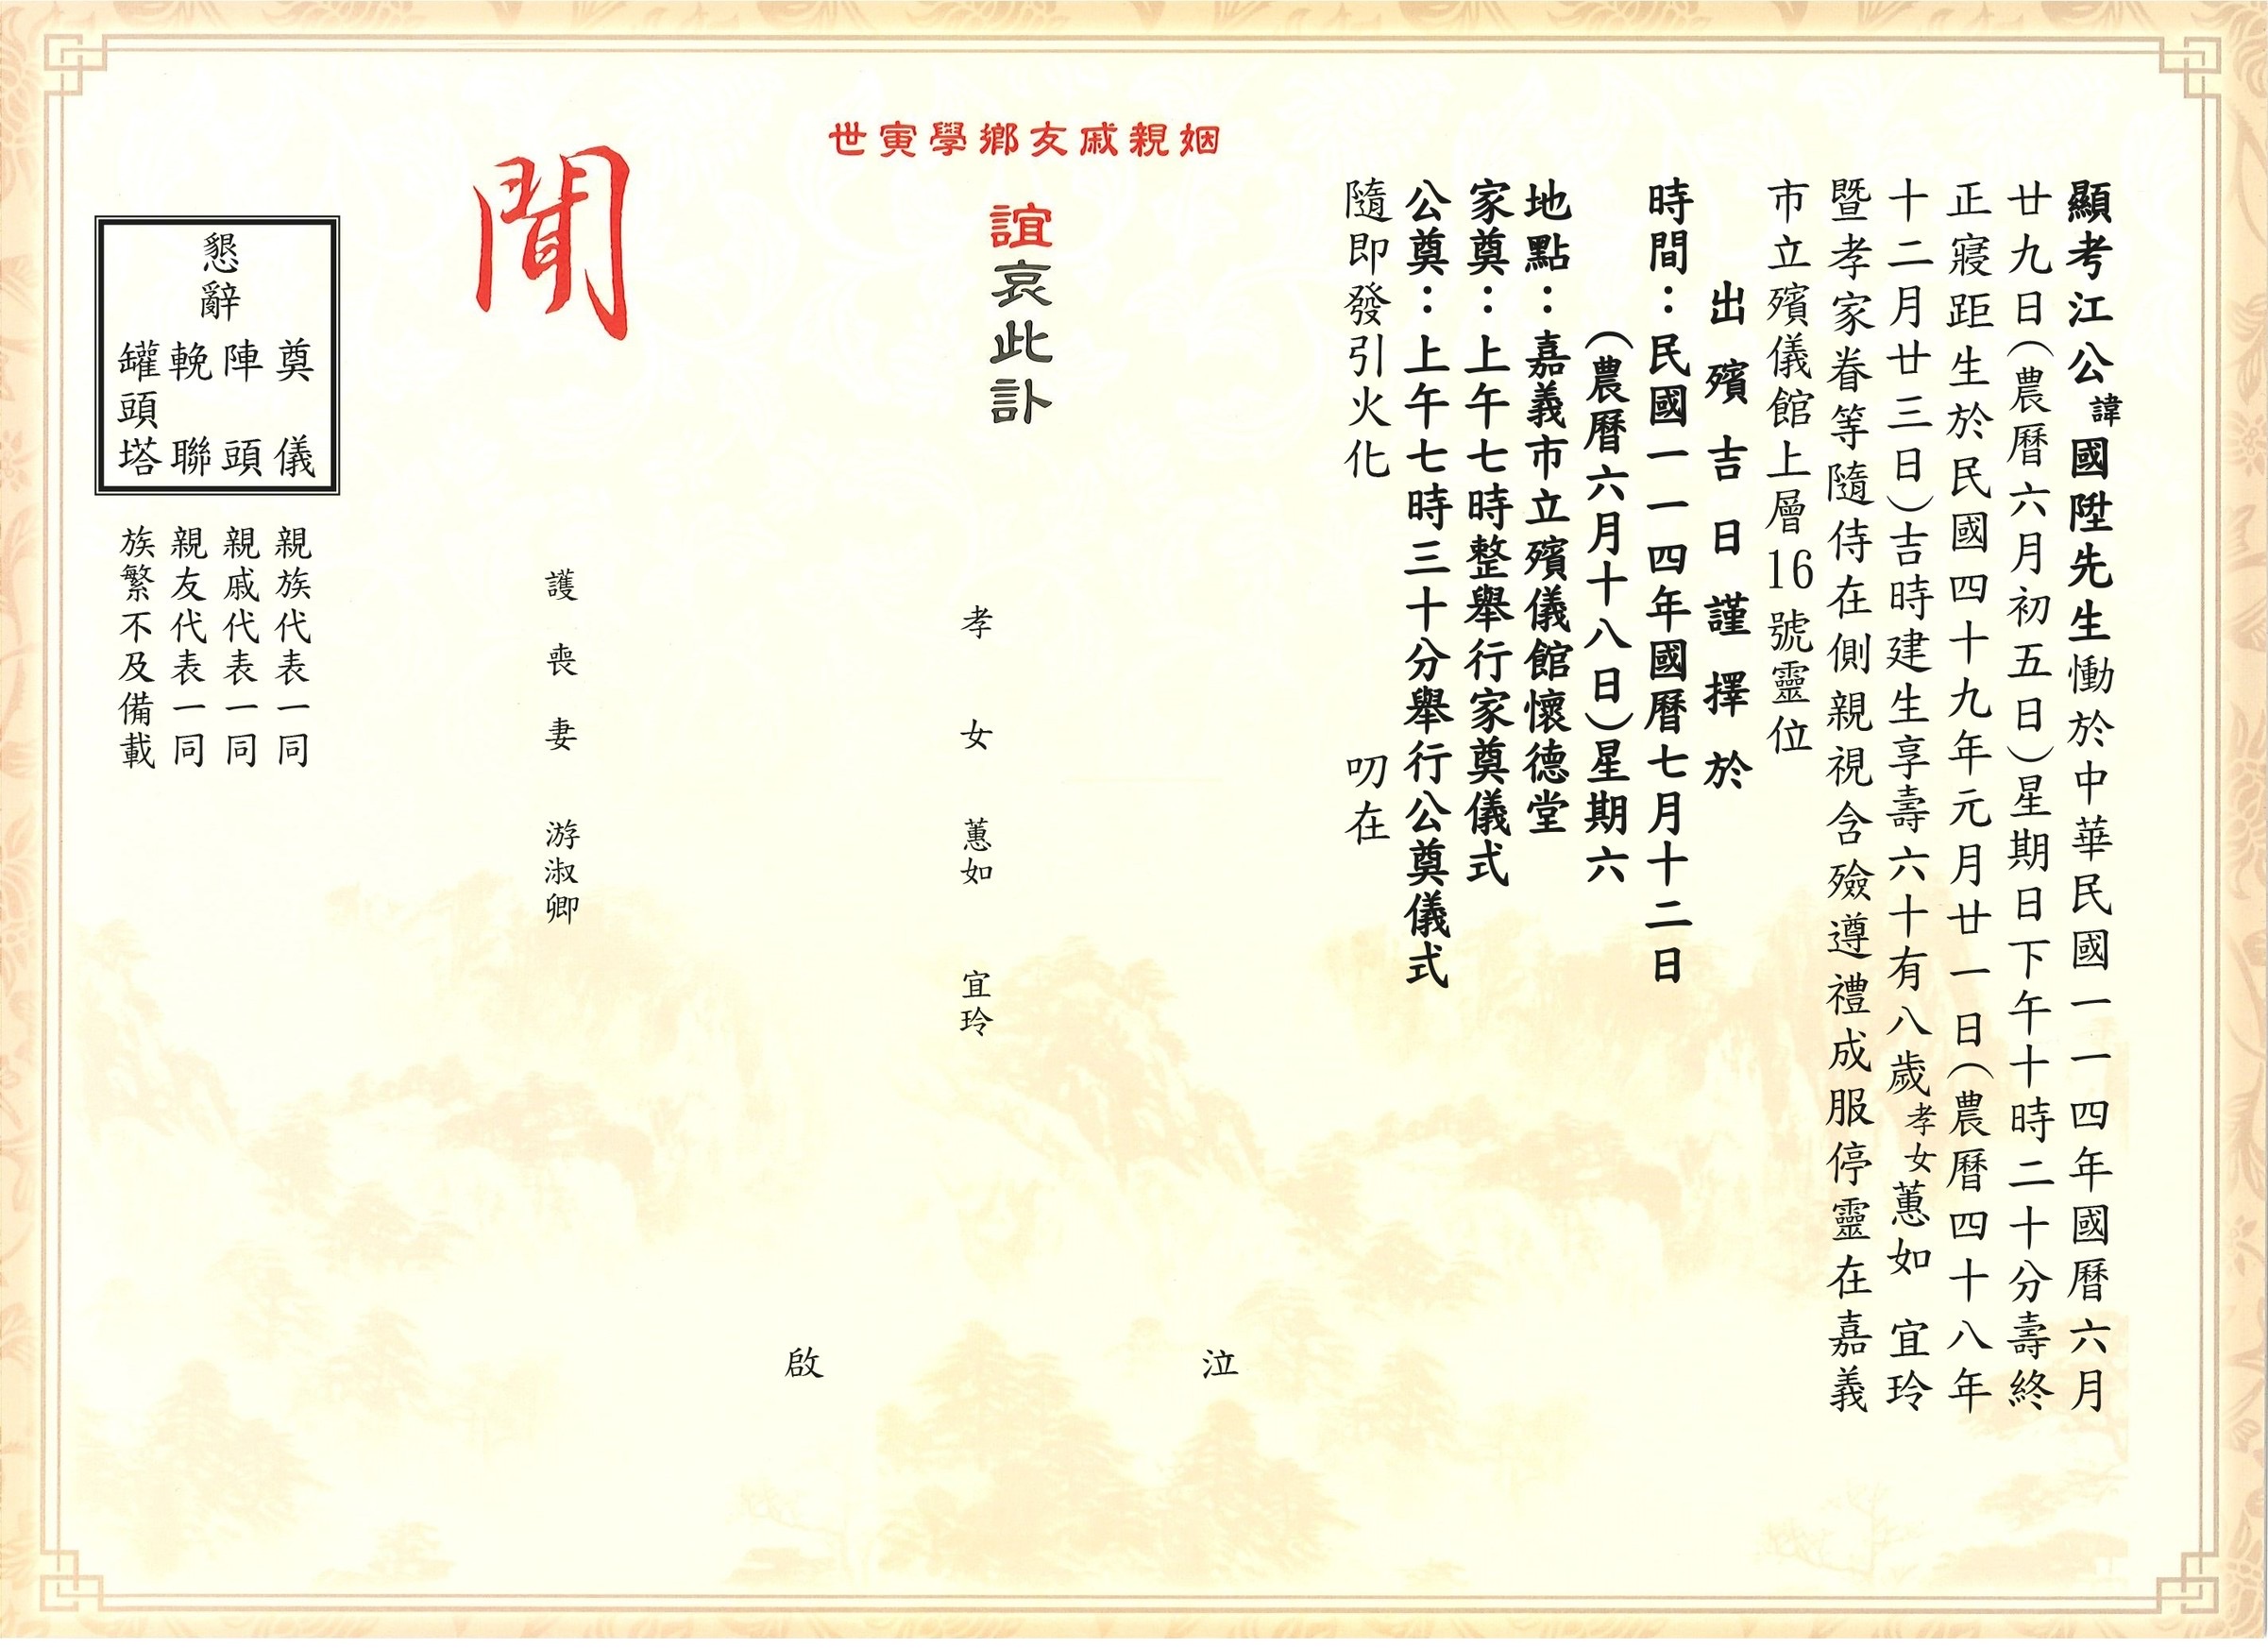 顯考江公諱國陞先生慟於中華民國一一四年國曆六月
廿九日(農曆六月初五日)星期日下午十時二十分壽終
正寢距生於民國四十九年元月廿一日(農曆四十八年
十二月廿三日)吉時建生享壽六十有八歲孝女蕙如 宜玲
暨孝家眷等隨侍在側親視含殮遵禮成服停靈在嘉義
市立殯儀館上層16號靈位
出殯吉日謹擇於
時間:民國一一四年國曆七月十二日
(農曆六月十八日)星期六
地點:嘉義市立殯儀館懷德堂
家奠:上午七時整舉行家奠儀式
公奠:上午七時三十分舉行公奠儀式
隨即發引火化 叨在
姻親戚友鄉學寅世
誼哀此訃
聞
泣
孝女 蕙如 宜玲
啟
護喪妻 游淑卿
懇辭
奠儀
陣頭
輓聯
罐頭塔
親族代表一同
親戚代表一同
親友代表一同
族繁不及備載